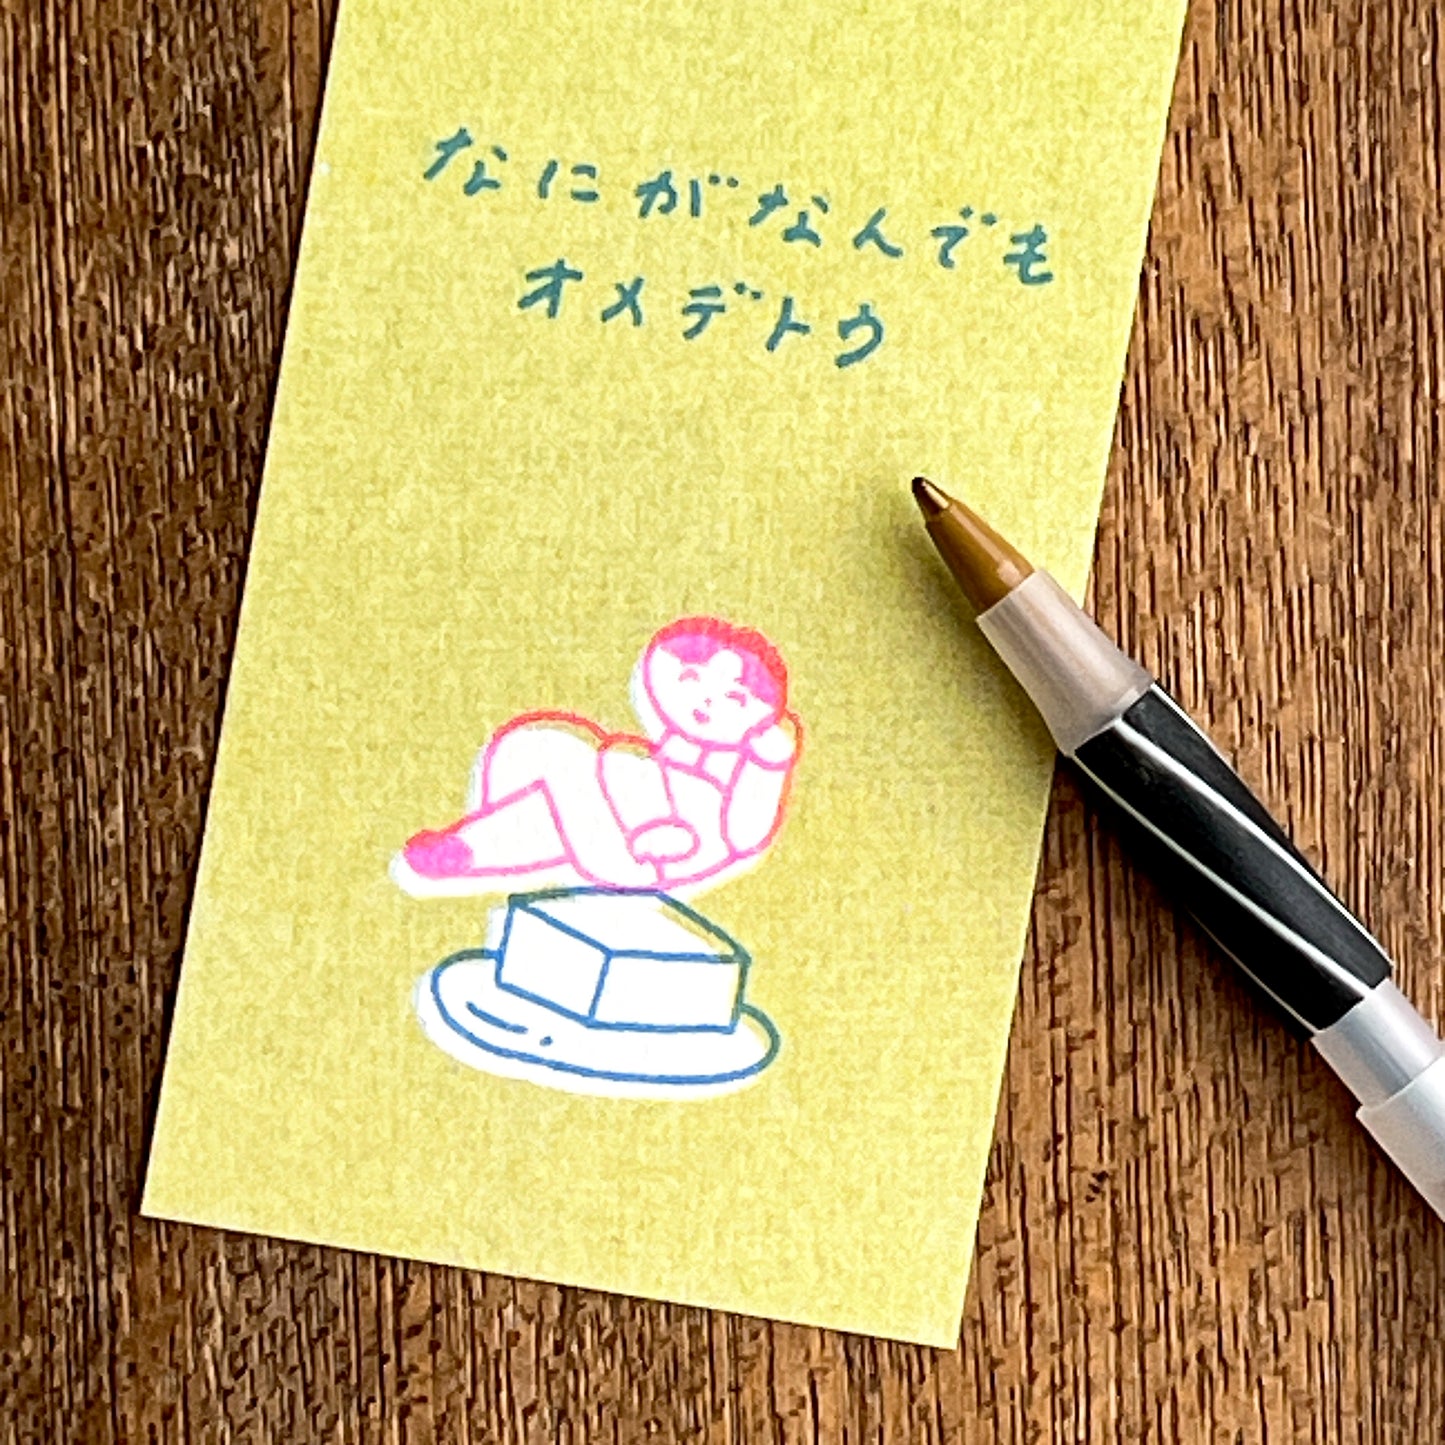 なにがなんでも
オメデトウ